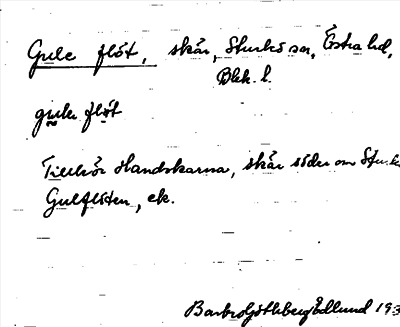 Gule flöt, skär, Sturkö sn, Östra hd,
Blek. l.
gule flöt
Tillhör Handskarna, skär söder om Sturkö
Gulflöten, ek.
Barbro Göthberg Edlund 193